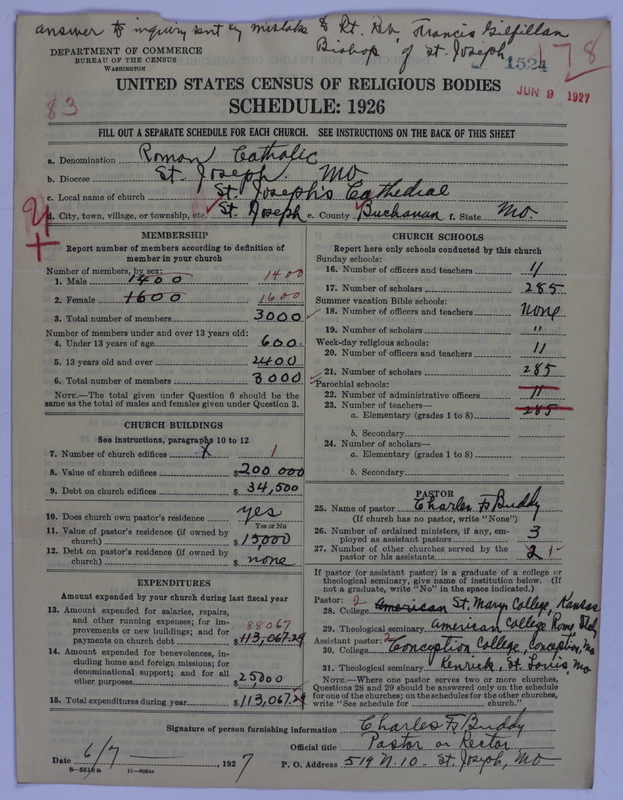 answer to inquiry sent by mistake to Rt. Rev. Francis Gilfillan
Bishop of St. Joseph
178
1524
JUN 9 1927
83
DEPARTMENT OF COMMERCE
BUREAU OF THE CENSUS
WASHINGTON
UNITED STATES CENSUS OF RELIGIOUS BODIES
SCHEDULE: 1926
FILL OUT A SEPARATE SCHEDULE FOR EACH CHURCH. SEE INSTRUCTIONS ON THE BACK OF THIS SHEET
a. Denomination Roman Catholic
b. Diocese St. Joseph. Mo
c. Local name of church St. Joseph's Cathedral
d. City, town, village, or township, etc. St. Joseph e. County Buchanan f. State Mo.
MEMBERSHIP
Report number of members according to definition of
member in your church
Number of members, by sex:
1. Male 1400 1400
2. Female 1600 1600
3. Total number of members 3000
Number of members under and over 13 years old:
4. Under 13 years of age 600
5. 13 years old and over 2400
6. Total number of members 3000
NOTE.—The total given under Question 6 should be the
same as the total of males and females given under Question 3.
CHURCH BUILDINGS
See instructions, paragraphs 10 to 12
7. Number of church edifices 1
8. Value of church edifices $200 000
9. Debt on church edifices $34,500
10. Does church own pastor's residence yes
Yes or No
11. Value of pastor's residence (if owned by
church) $15,000
12. Debt on pastor's residence (if owned by
church) $none
EXPENDITURES
Amount expended by your church during last fiscal year
13. Amount expended for salaries, repairs,
and other running expenses; for im-
provements or new buildings; and for
payments on church debt 88067 $113,067.29
14. Amount expended for benevolences, in-
cluding home and foreign missions; for
denominational support; and for all
other purposes $25000
15. Total expenditures during year $113,067.29
CHURCH SCHOOLS
Report here only schools conducted by this church
Sunday schools:
16. Number of officers and teachers 11
17. Number of scholars 285
Summer vacation Bible schools:
18. Number of officers and teachers none
19. Number of scholars "
Week-day religious schools:
20. Number of officers and teachers 11
21. Number of scholars 285
Parochial schools:
22. Number of administrative officers 11
23. Number of teachers— 285
a. Elementary (grades 1 to 8)
b. Secondary
24. Number of scholars—
a. Elementary (grades 1 to 8)
b. Secondary
PASTOR
25. Name of pastor Charles F. Buddy
(If church has no pastor, write "None")
26. Number of ordained ministers, if any, em-
ployed as assistant pastors 3
27. Number of other churches served by the
pastor (or his assistants) 2 1
If pastor (or assistant pastor) is a graduate of a college or
theological seminary, give name of institution below. (If
not a graduate, write "No" in the space indicated.)
Pastor: 2
28. College American St. Mary College, Kansas
29. Theological seminary American College Rome Italy
Assistant pastor: 2
30. College Conception College, Conception, Mo
31. Theological seminary Kenrick, St. Louis, Mo
NOTE.—Where one pastor serves two or more churches,
Questions 28 and 29 should be answered only on the schedule
for one of the churches; on the schedules for the other churches,
write "See schedule for church."
Signature of person furnishing information Charles F. Buddy
Official title Pastor or Rector
Date 6/7, 1927 P. O. Address 519 N. 10 - St. Joseph, Mo
8—5518a 11—9064a